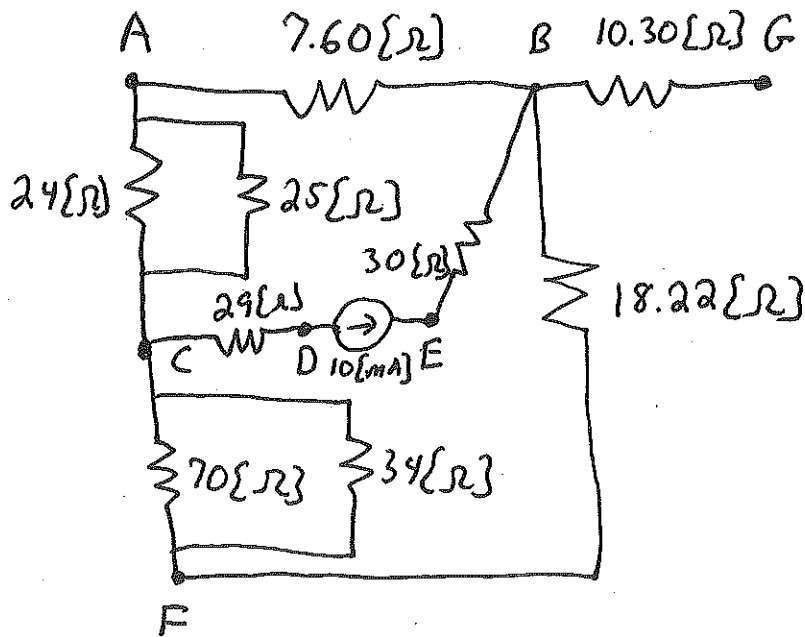 A 7.60[Ω] B 10.30[Ω] G
24[Ω] 25[Ω]
30[Ω]
29[Ω] 18.22[Ω]
C D 10[mA] E
70[Ω] 34[Ω]
F